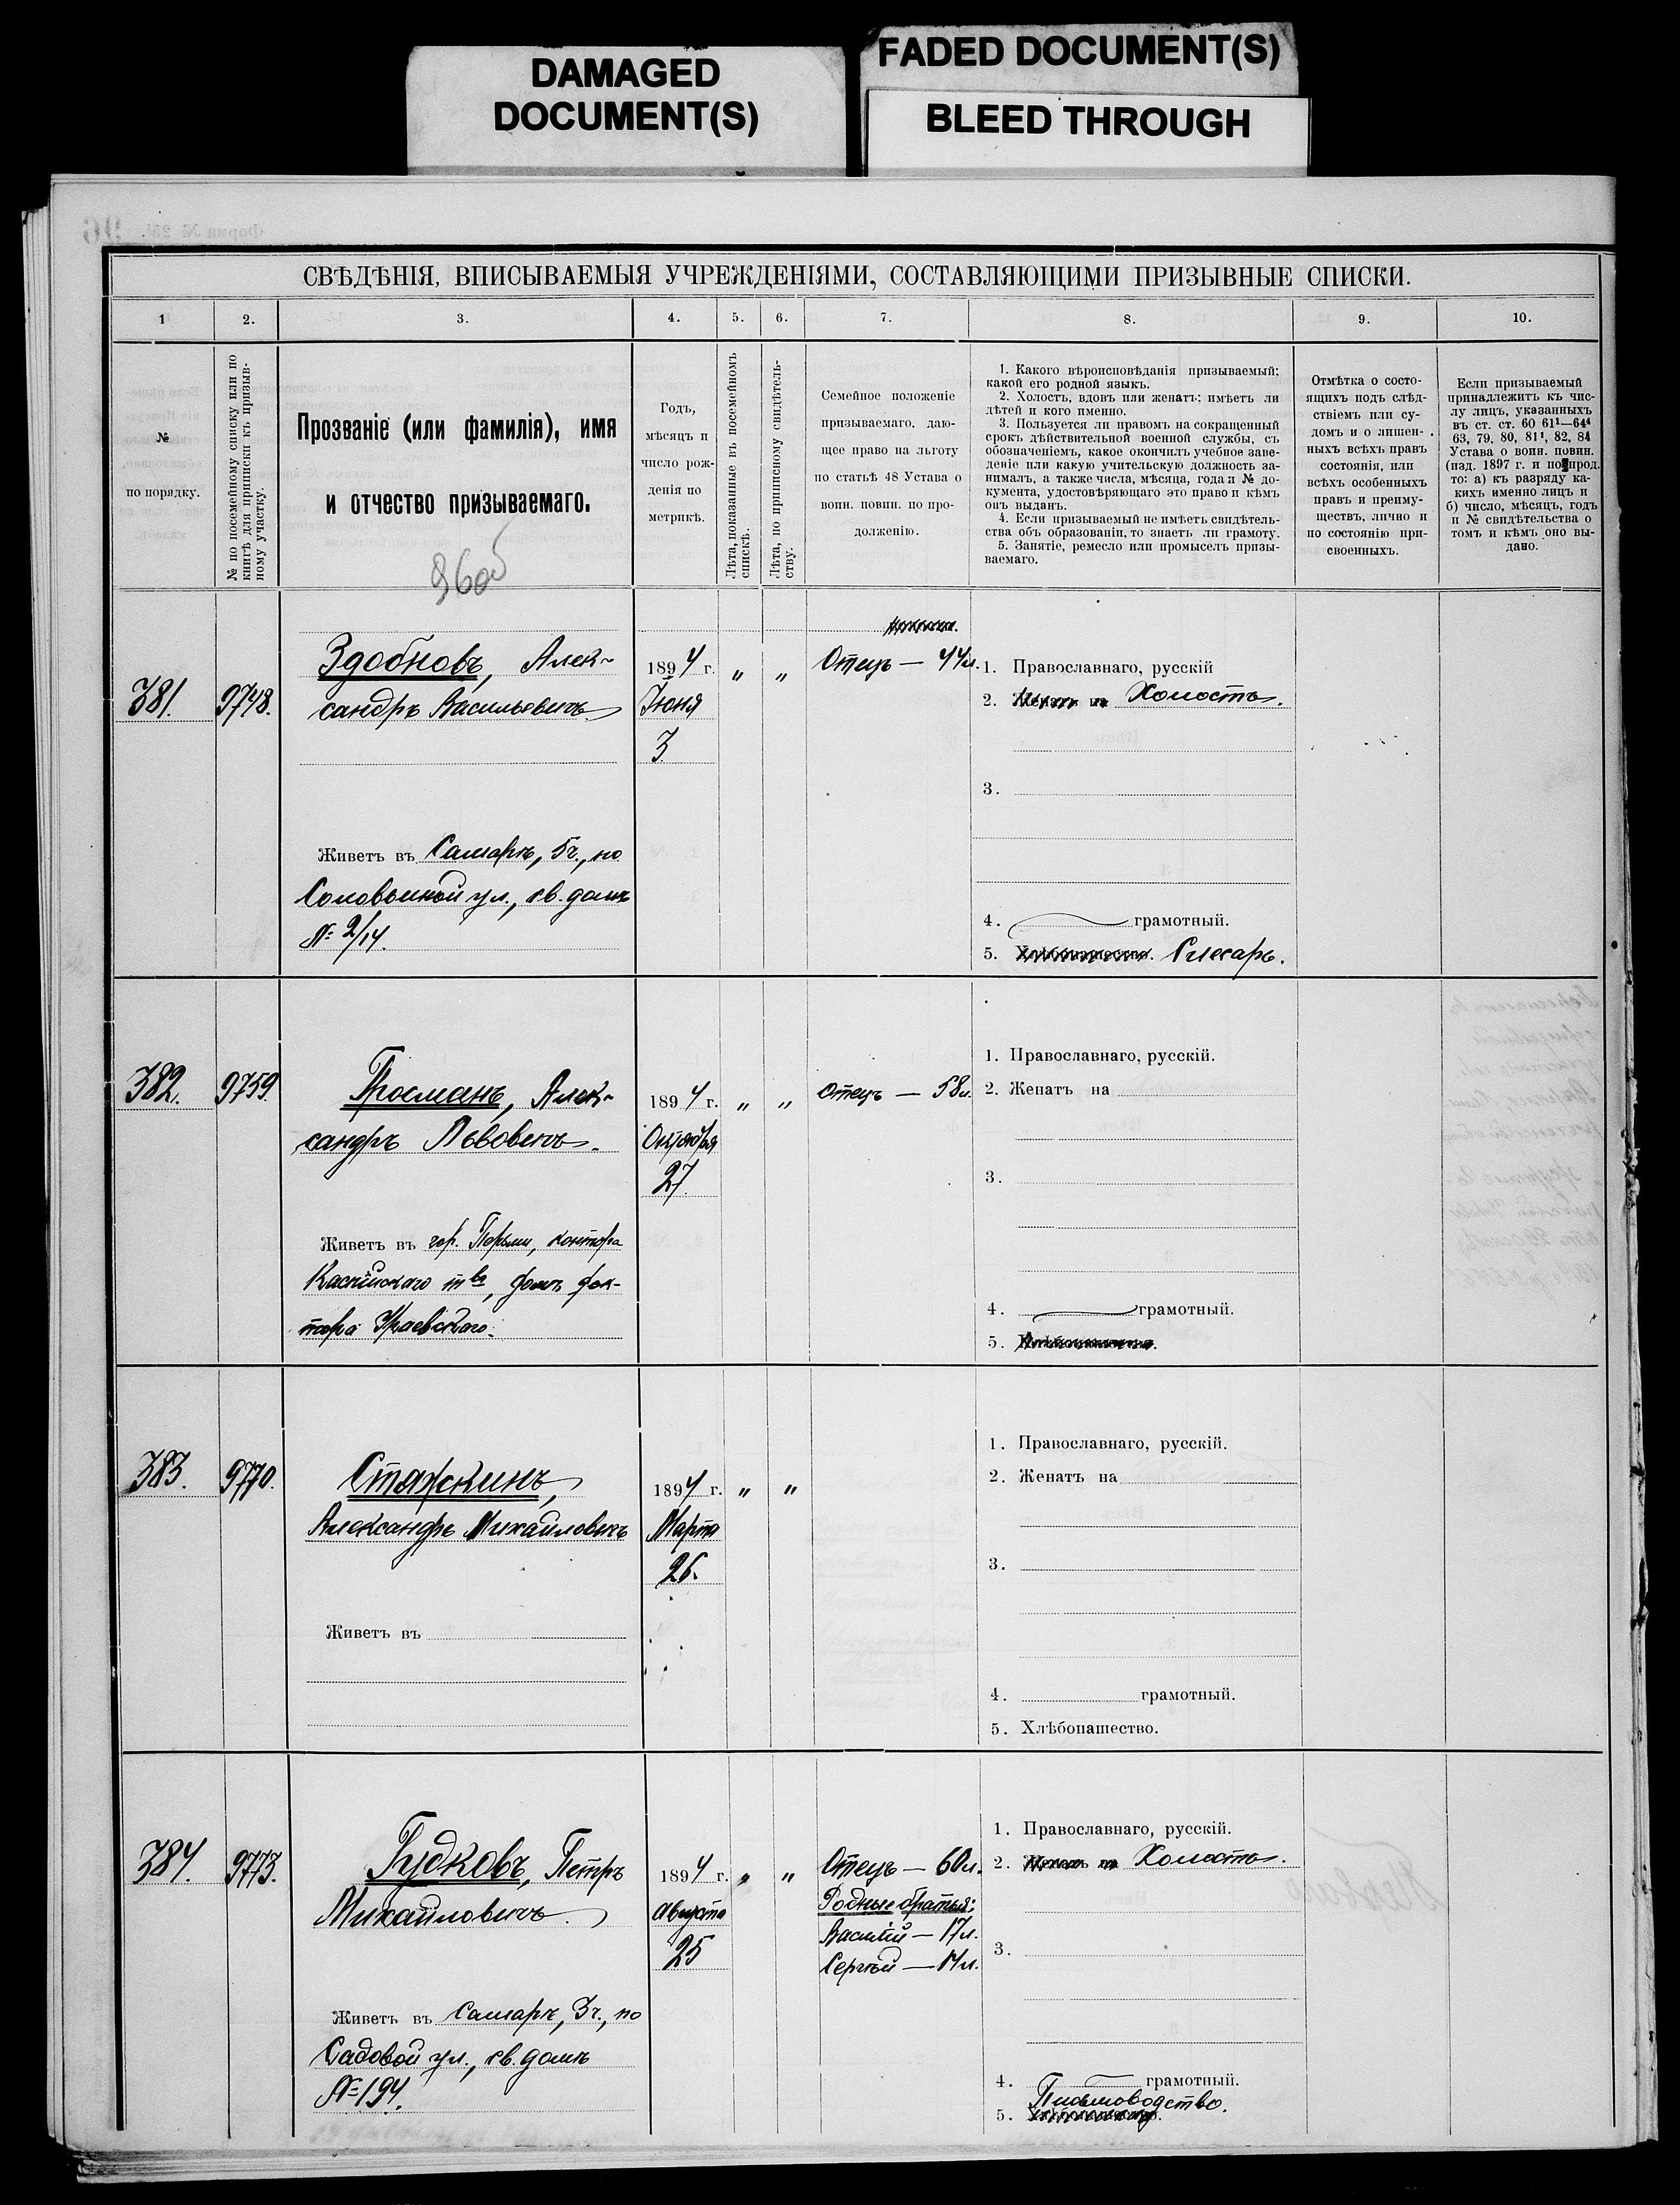 DAMAGED
DOCUMENT(S)
FADED DOCUMENT(S)
BLEED THROUGH
СВѢДѢНІЯ, ВПИСЫВАЕМЫЯ УЧРЕЖДЕНІЯМИ, СОСТАВЛЯЮЩИМИ ПРИЗЫВНЫЕ СПИСКИ.
1 2. 3. 4. 5. 6. 7. 8. 9. 10.
№
по порядку.
№ по посемейному списку или по
книгѣ для приписки къ призыв-
ному участку.
Прозваніе (или фамилія), имя
и отчество призываемаго.
96об
Годъ,
мѣсяцъ и
число рож-
денія по
метрикѣ.
Лѣта, показанные въ посемейномъ
спискѣ.
Лѣта, по приписному свидѣтель-
ству.
Семейное положеніе
призываемаго, даю-
щее право на льготу
по статьѣ 48 Устава о
воин. повин. по про-
долженію.
1. Какого вѣроисповѣданія призываемый;
какой его родной языкъ.
2. Холостъ, вдовъ или женатъ; имѣетъ ли
дѣтей и кого именно.
3. Пользуется ли правомъ на сокращенный
срокъ дѣйствительной военной службы, съ
обозначеніемъ, какое окончилъ учебное заве-
деніе или какую учительскую должность за-
нималъ, а также числа, мѣсяца, года и № до-
кумента, удостовѣряющаго это право и кѣмъ
онъ выданъ.
4. Если призываемый не имѣетъ свидѣтель-
ства объ образованіи, то знаетъ ли грамоту.
5. Занятіе, ремесло или промыселъ призы-
ваемаго.
Отмѣтка о состо-
ящихъ подъ слѣд-
ствіемъ или су-
домъ и о лишен-
ныхъ всѣхъ правъ
состоянія, или
всѣхъ особенныхъ
правъ и преиму-
ществъ, лично и
по состоянію при-
своенныхъ.
Если призываемый
принадлежитъ къ чис-
лу лицъ, указанныхъ
въ ст. ст. 60 61¹—64⁴
63, 79, 80, 81¹, 82, 84
Устава о воин. повин.
(изд. 1897 г. и по прод.
то: а) къ разряду ка-
кихъ именно лицъ и
б) число, мѣсяцъ, годъ
и № свидѣтельства о
томъ и кѣмъ оно вы-
дано.
381. 9748.
Здобновъ, Алек-
сандръ Васильевичъ
1894 г. " "
Іюня
3
Отецъ — 44 л.
1. Православнаго, русскій
2. Холостъ.
3.
Живетъ въ Самарѣ, 5ч., по
Соловьиной ул., св. домъ
№ 2/14.
4. грамотный.
5. Слесарь.
382. 9759.
Гросманъ, Алек-
сандръ Львовичъ.
1894 г. " "
Октября
27.
Отецъ — 58 л.
1. Православнаго, русскій.
2. Женатъ на
3.
Живетъ въ гор. Перми, контора
Каспійскаго т-ва, домъ док-
тора Краевскаго.
4. грамотный.
5.
383. 9770.
Стажкинъ,
Александръ Михайловичъ
1894 г. " "
Марта
26.
1. Православнаго, русскій.
2. Женатъ на
3.
Живетъ въ
4. грамотный.
5. Хлѣбопашество.
384. 9773.
Гудковъ, Петръ
Михайловичъ.
1894 г. " "
Августа
25
Отецъ — 60 л.
Родные братья:
Василій — 17 л.
Сергѣй — 14 л.
1. Православнаго, русскій.
2. Холостъ.
3.
Живетъ въ Самарѣ, 3ч., по
Садовой ул., св. домъ
№ 194.
4. грамотный.
Письмоводство.
5.